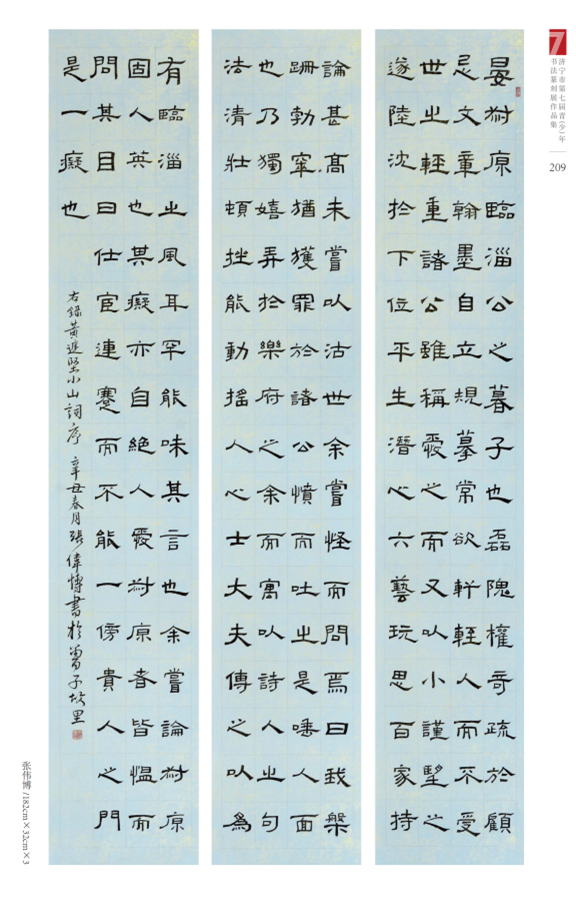 晏叔原臨淄公之暮子也磊隗權奇疏於顧
忌文章翰墨自立規摹常欲軒輊人而不受
世之輕重諸公雖稱愛之而又以小謹望之
遂陸沈於下位平生潛心六藝玩思百家持
論甚高未嘗以沽世余嘗怪而問焉曰我槃
跚勃窣猶獲罪於諸公憤而吐之是唾人面
也乃獨嬉弄於樂府之余而寓以詩人之句
法清壯頓挫能動搖人心士大夫傳之以為
有臨淄之風耳罕能味其言也余嘗論叔原
固人英也其癡亦自絕人愛叔原者皆慍而
問其目曰仕宦連蹇而不能一傍貴人之門
是一癡也
右錄黃庭堅小山詞序 辛丑春月張偉博書於曾子故里
7
济宁市第七届青(少)年
书法篆刻展作品集
209
张伟博/182cm×32cm×3